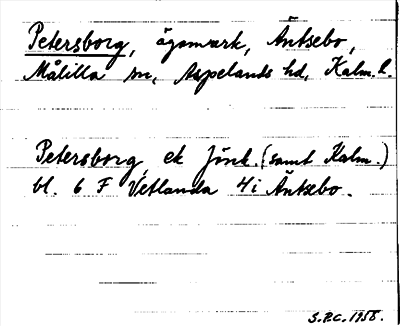 Petersborg, ägomark, Äntsebo,
Målilla sn, Aspelands hd, Kalm. l.
Petersborg ek Jönk. (samt Kalm.)
bl. 6 F Vetlanda 4i Äntsebo.
S.P.C. 1958.